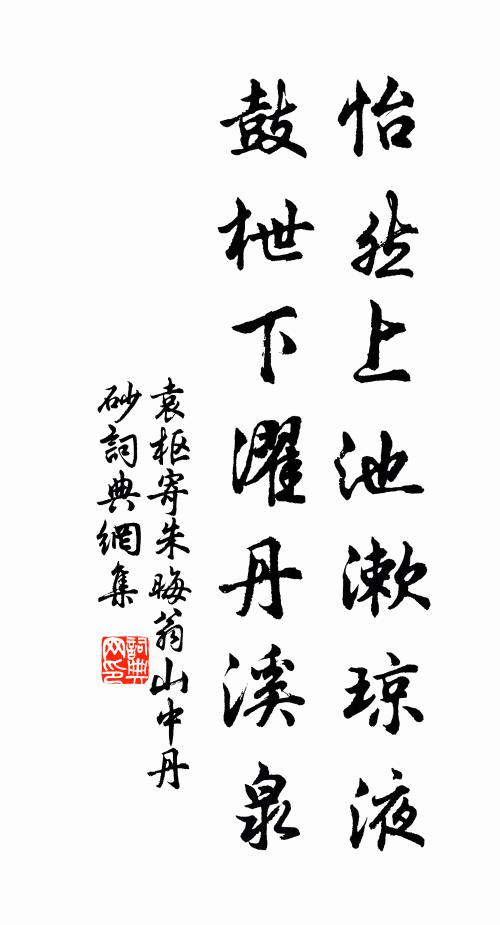 怡然上池漱琼液
鼓枻下濯丹溪泉
袁枢寄朱晦翁山中丹
砂詞典網集
詞典网印